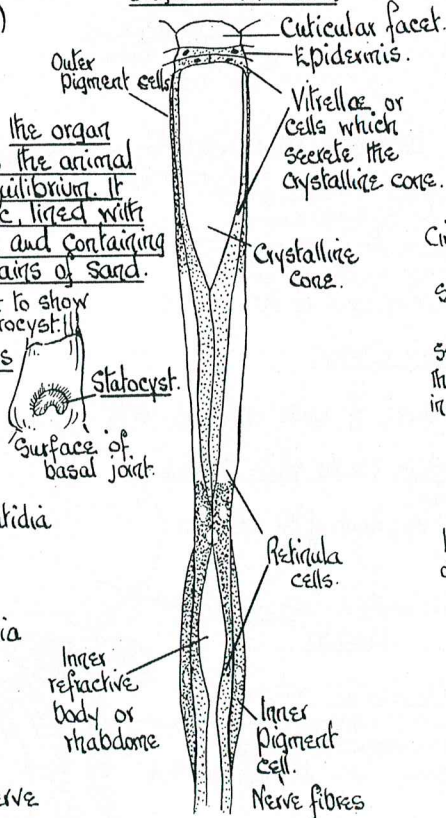 Cuticular facet.
Epidermis.
Outer
pigment cells
Vitrellæ or
cells which
secrete the
crystalline cone.
the organ
the animal
uilibrium. It
c, lined with
and containing
ains of sand.
Crystalline
cone.
t to show
rocyst.
s
Statocyst.
Surface of
basal joint.
tidia
Retinula
cells.
ia
Inner
refractive
body or
rhabdome
Inner
Pigment
cell.
erve
Nerve fibres
Ci
s
s
th
in